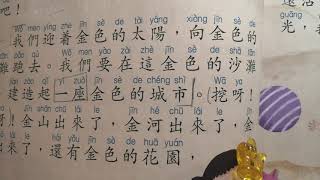 吧！
Wǒ men yíng zhe jīn sè de tài yáng xiàng jīn sè de
我們迎着金色的太陽，向金色的
tān pǎo qù Wǒ men yào zài zhè jīn sè de shā tān
灘跑去。我們要在這金色的沙灘
jiàn zào qǐ yí zuò jīn sè de chéng shì Wā ya
建造起一座金色的城市。挖呀！
jīn shān chū lái le jīn hé chū lái le
呀！金山出來了，金河出來了，金
lái le hái yǒu jīn sè de huā yuán
來了，還有金色的花園，
還沒
guāng
光，我